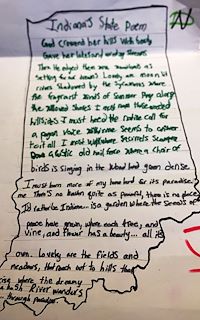 Indiana's State Poem
God crowned her hills with beauty
Gave her lakes and winding streams
Then He edged them all with woodlands as
setting for our dreams Lovely are moonlit
rivers Shadowed by the sycamores where
the fragrant winds of Summer Play along
the willowed Shores I must roam those wooded
hillsides I must heed the native call for
a pagan voice within me Seems to answer
to it all I must walk where squirrels scamper
Down a rustic old rail fence where a choir of
birds is singing in the woodland green dense
I must learn more of my homeland for it's paradise to
me There's no haven quite as peaceful, there is no place
I'd rather be Indiana... is a garden where the seeds of
peace have grown, where each tree, and
vine, and flower has a beauty... all its
own. Lovely are the fields and
meadows, that reach out to hills that
rise where the dreamy
Wabash River wanders
... through paradise.